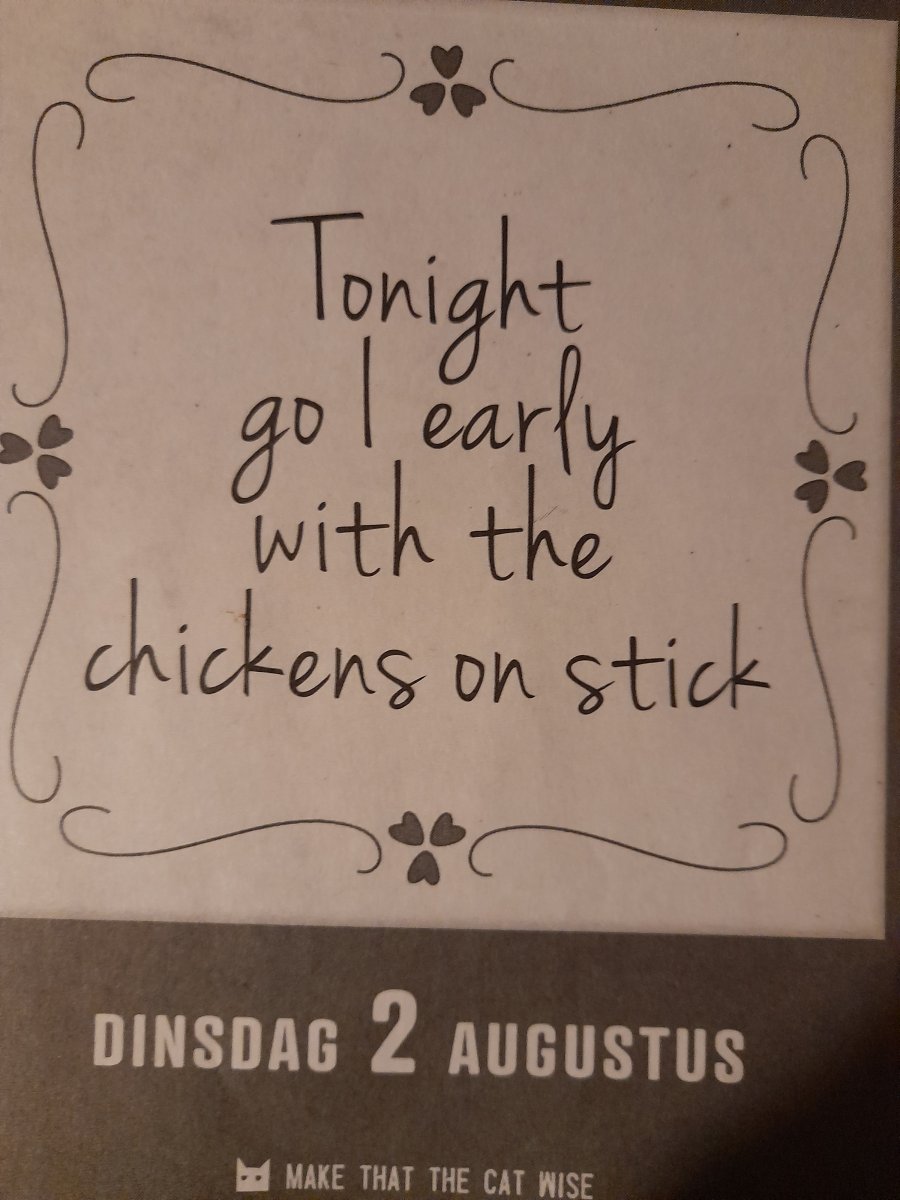 Tonight
go I early
with the
chickens on stick
DINSDAG 2 AUGUSTUS
MAKE THAT THE CAT WISE